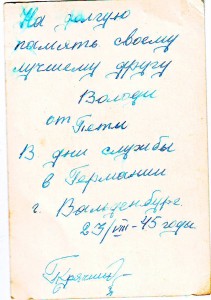 На долгую
память своему
лучшему другу
Володи
от Пети
В дни службы
в Германии
г. Вальденбург.
23/VIII-45 годы.